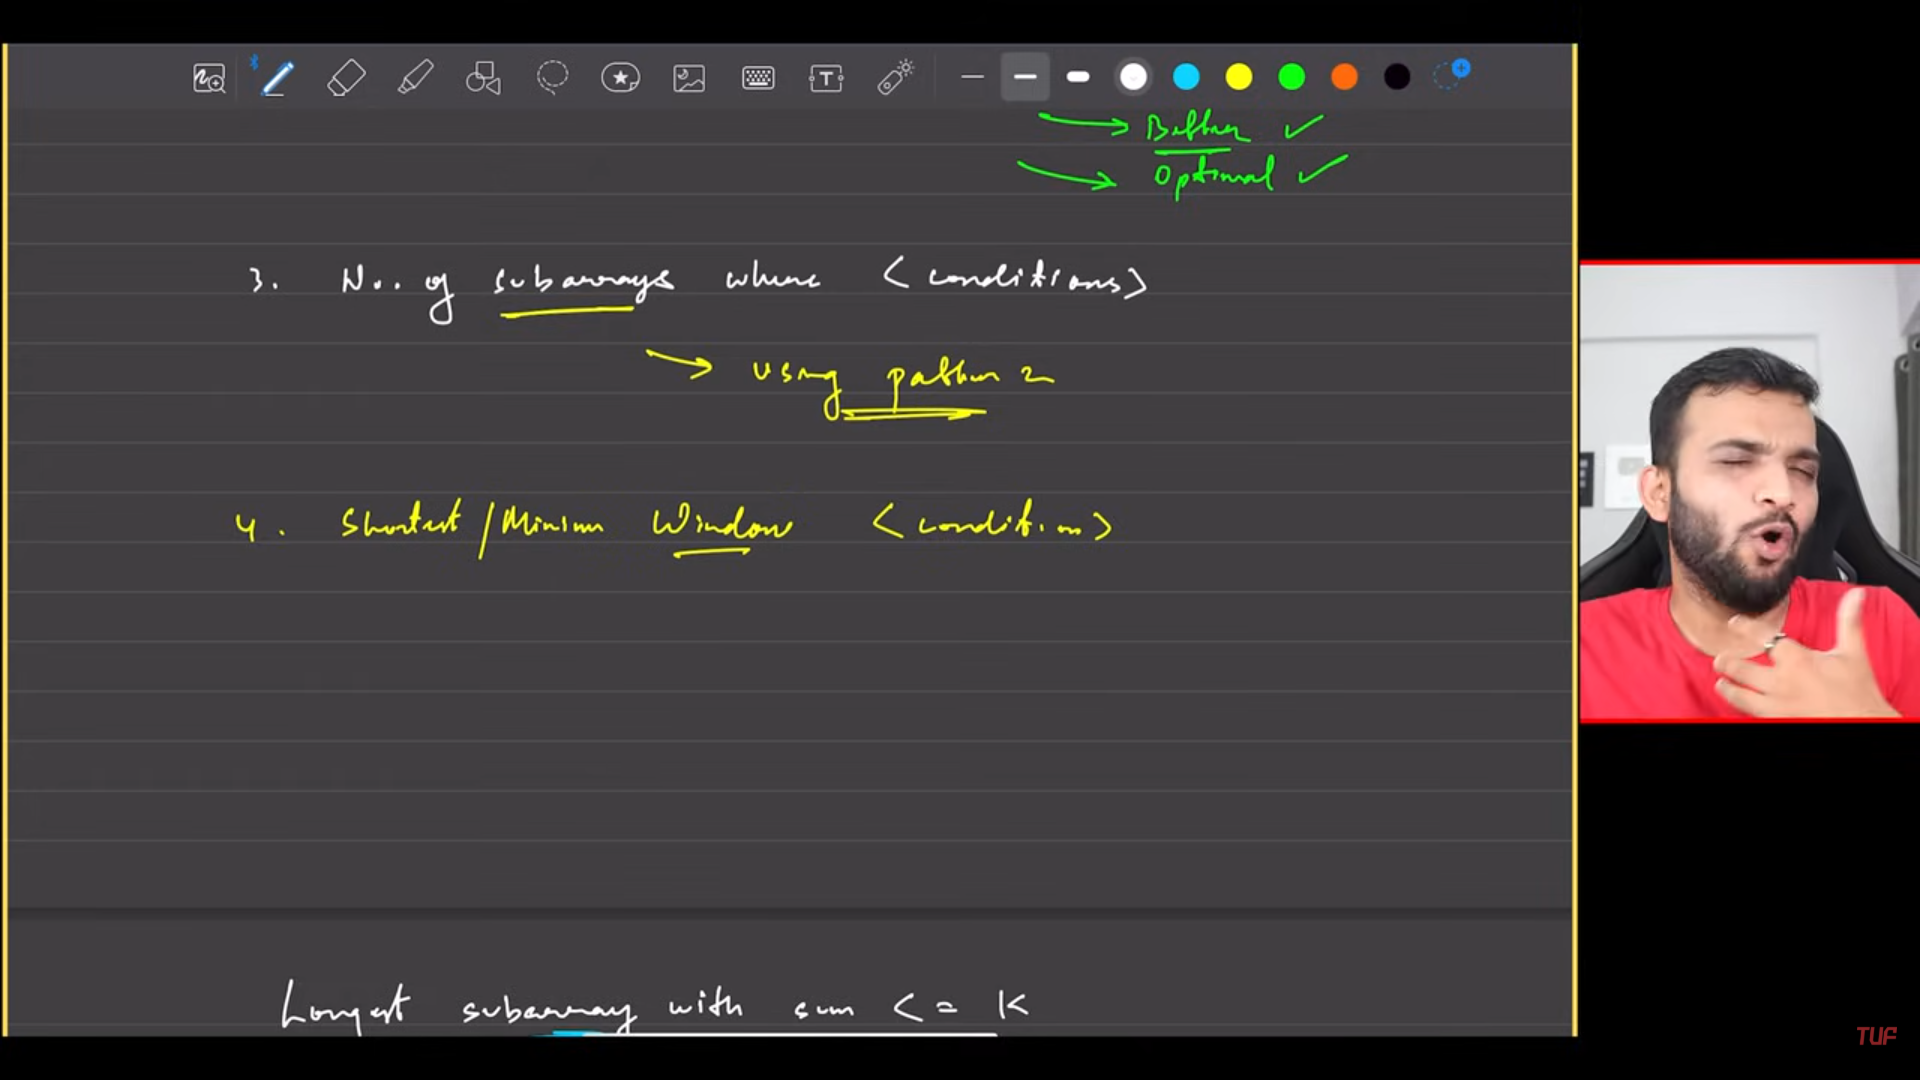 → Better ✓
→ Optimal ✓
3. No. of subarrays where <conditions>
→ using pattern 2
4. Shortest/Minimum Window <condition>
Longest subarray with sum <= K
TUF